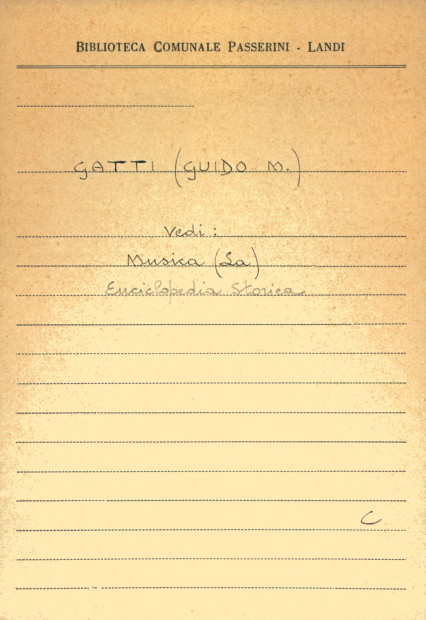 BIBLIOTECA COMUNALE PASSERINI - LANDI
GATTI (GUIDO M.)
Vedi:
Musica (La)
Enciclopedia Storica
C